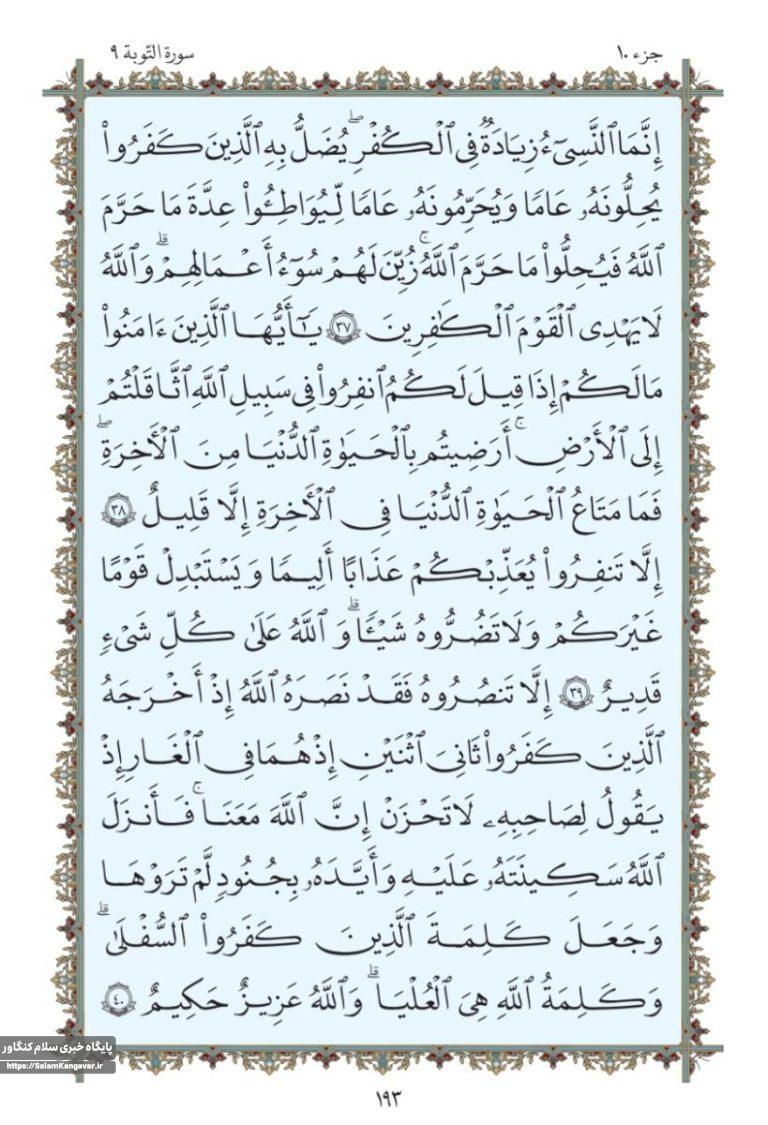 جزء ۱۰
سورة التّوبة ۹
إِنَّمَا ٱلنَّسِىٓءُ زِيَادَةٌ فِى ٱلْكُفْرِ ۖ يُضَلُّ بِهِ ٱلَّذِينَ كَفَرُوا۟
يُحِلُّونَهُۥ عَامًا وَيُحَرِّمُونَهُۥ عَامًا لِّيُوَاطِـُٔوا۟ عِدَّةَ مَا حَرَّمَ
ٱللَّهُ فَيُحِلُّوا۟ مَا حَرَّمَ ٱللَّهُ ۚ زُيِّنَ لَهُمْ سُوٓءُ أَعْمَـالِهِمْ ۗ وَٱللَّهُ
لَا يَهْدِى ٱلْقَوْمَ ٱلْكَـٰفِرِينَ ﴿۳۷﴾ يَـٰٓأَيُّهَا ٱلَّذِينَ ءَامَنُوا۟
مَا لَكُمْ إِذَا قِيلَ لَكُمُ ٱنفِرُوا۟ فِى سَبِيلِ ٱللَّهِ ٱثَّاقَلْتُمْ
إِلَى ٱلْأَرْضِ ۚ أَرَضِيتُم بِٱلْحَيَوٰةِ ٱلدُّنْيَا مِنَ ٱلْأَخِرَةِ ۖ
فَمَا مَتَاعُ ٱلْحَيَوٰةِ ٱلدُّنْيَا فِى ٱلْأَخِرَةِ إِلَّا قَلِيلٌ ﴿۳۸﴾
إِلَّا تَنفِرُوا۟ يُعَذِّبْكُمْ عَذَابًا أَلِيمًا وَيَسْتَبْدِلْ قَوْمًا
غَيْرَكُمْ وَلَا تَضُرُّوهُ شَيْـًٔا ۗ وَٱللَّهُ عَلَىٰ كُلِّ شَىْءٍ
قَدِيرٌ ﴿۳۹﴾ إِلَّا تَنصُرُوهُ فَقَدْ نَصَرَهُ ٱللَّهُ إِذْ أَخْرَجَهُ
ٱلَّذِينَ كَفَرُوا۟ ثَانِىَ ٱثْنَيْنِ إِذْ هُمَا فِى ٱلْغَارِ إِذْ
يَقُولُ لِصَاحِبِهِۦ لَا تَحْزَنْ إِنَّ ٱللَّهَ مَعَنَا ۚ فَأَنزَلَ
ٱللَّهُ سَكِينَتَهُۥ عَلَيْهِ وَأَيَّدَهُۥ بِجُنُودٍ لَّمْ تَرَوْهَا
وَجَعَلَ كَلِمَةَ ٱلَّذِينَ كَفَرُوا۟ ٱلسُّفْلَىٰ ۗ
وَكَلِمَةُ ٱللَّهِ هِىَ ٱلْعُلْيَا ۗ وَٱللَّهُ عَزِيزٌ حَكِيمٌ ﴿۴۰﴾
پایگاه خبری سلام کنگاور
https://SalamKangavar.ir
۱۹۳